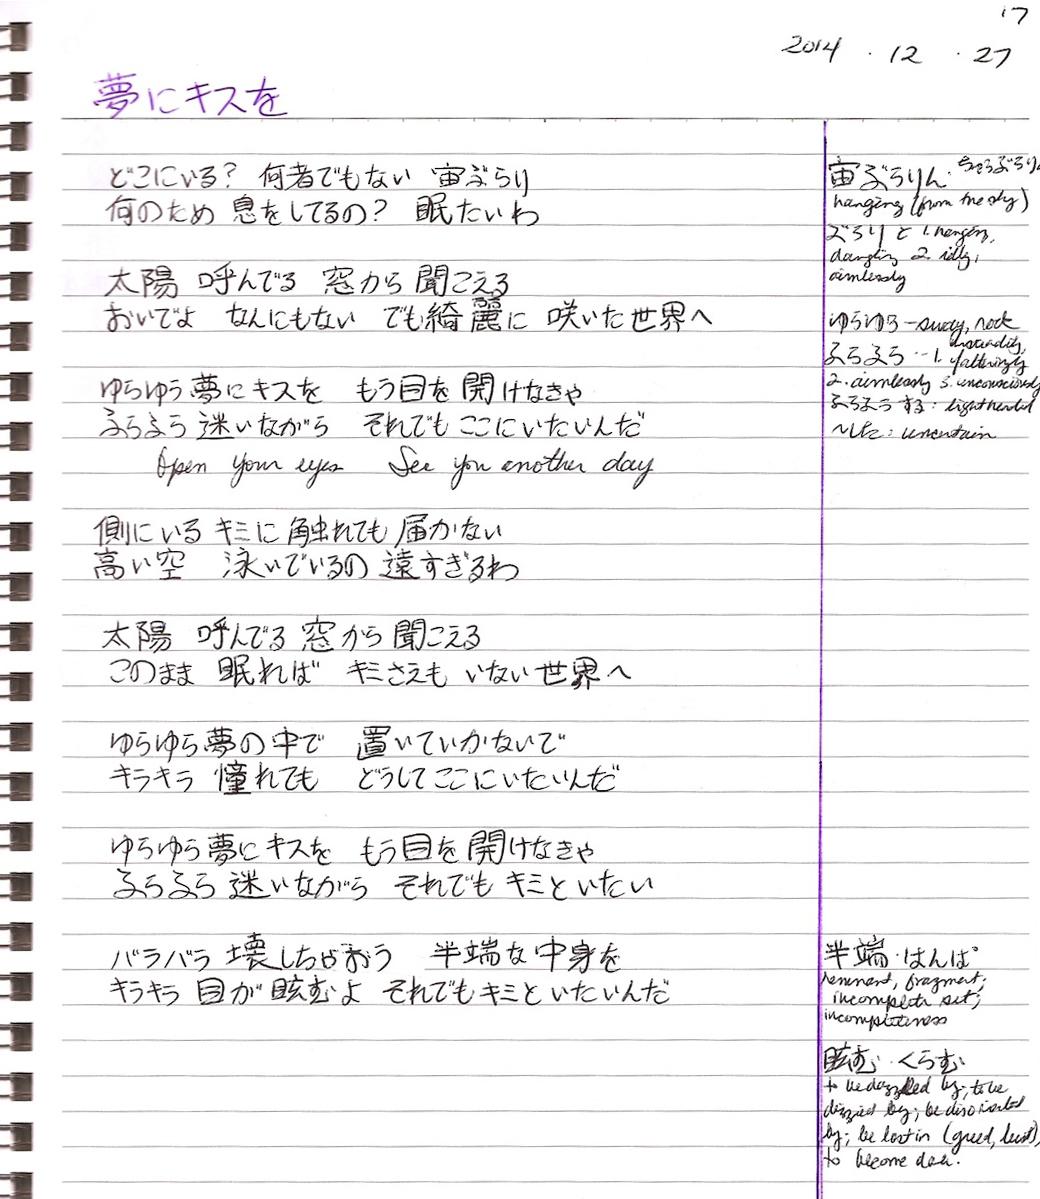 17
2014 . 12 . 27
夢にキスを
どこにいる? 何者でもない 宙ぶらり
何のため 息をしてるの? 眠たいわ
太陽 呼んでる 窓から 聞こえる
おいでよ なんにもない でも綺麗に 咲いた世界へ
ゆらゆら夢にキスを もう目を開けなきゃ
ふらふら迷いながら それでもここにいたいんだ
Open your eyes See you another day
側にいるキミに触れても届かない
高い空 泳いでいるの 遠すぎるわ
太陽 呼んでる 窓から 聞こえる
このまま 眠れば キミさえも いない世界へ
ゆらゆら夢の中で 置いていかないで
キラキラ 憧れても どうしてここにいたいんだ
ゆらゆら夢にキスを もう目を開けなきゃ
ふらふら迷いながら それでもキミといたい
バラバラ 壊しちゃおう 半端な中身を
キラキラ 目が眩むよ それでもキミといたいんだ
宙ぶらりん・ちゅうぶらりん
hanging (from the sky)
ぶらりと 1. hanging,
dangling 2. idly,
aimlessly
ゆらゆら - sway, rock
unsteadily,
ふらふら - 1. falteringly
2. aimlessly 3. unconsciously
ふらふらする: lightheaded
~した: uncertain
半端・はんぱ
remnant, fragment;
incomplete set;
incompleteness
眩む・くらむ
to be dazzled by; to be
dizzied by; be disoriented
by; be lost in (greed, lust),
to become dark.